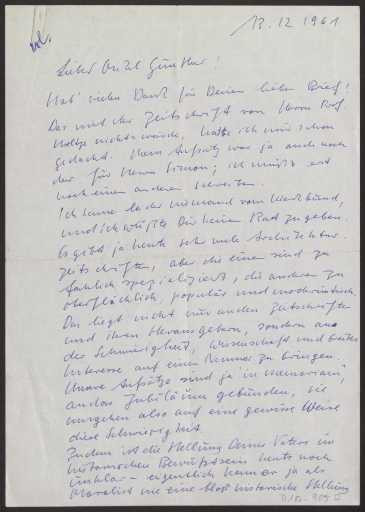 13.12.1961
erl.
Lieber Onkel Günther!
Hab' vielen Dank für Deinen lieben Brief!
Das mit der Zeitschrift von Herrn Prof.
nichts würde, hatte ich mir schon
gedacht. Mein Aufsatz war ja auch nach
der für Herrn Simon; ich müßte erst
noch einen anderen bereiten.
Ich kenne leider niemand vom Werkbund,
und ich wüßte Dir keinen Rad zu geben.
Es gibt ja heute sehr viele Architektur-
zeitschriften, aber die einen sind zu
fachlich spezialisiert, die anderen zu
oberflächlich, populär und modernistisch.
Das liegt nicht nur an den Zeitschriften
und ihren Herausgebern, sondern an
der Schwierigkeit, Wissenschaft und breites
Interesse auf einen Nenner zu bringen.
Unsere Aufsätze sind ja "in memoriam",
an das Jubiläum gebunden, sie
umgehen also auf eine gewisse Weise
diese Schwierigkeit.
Zudem ist die Stellung Deines Vaters im
historischen Bewußtsein heute noch
unklar - eigentlich kennen ja als
wie eine bloß historische Stellung